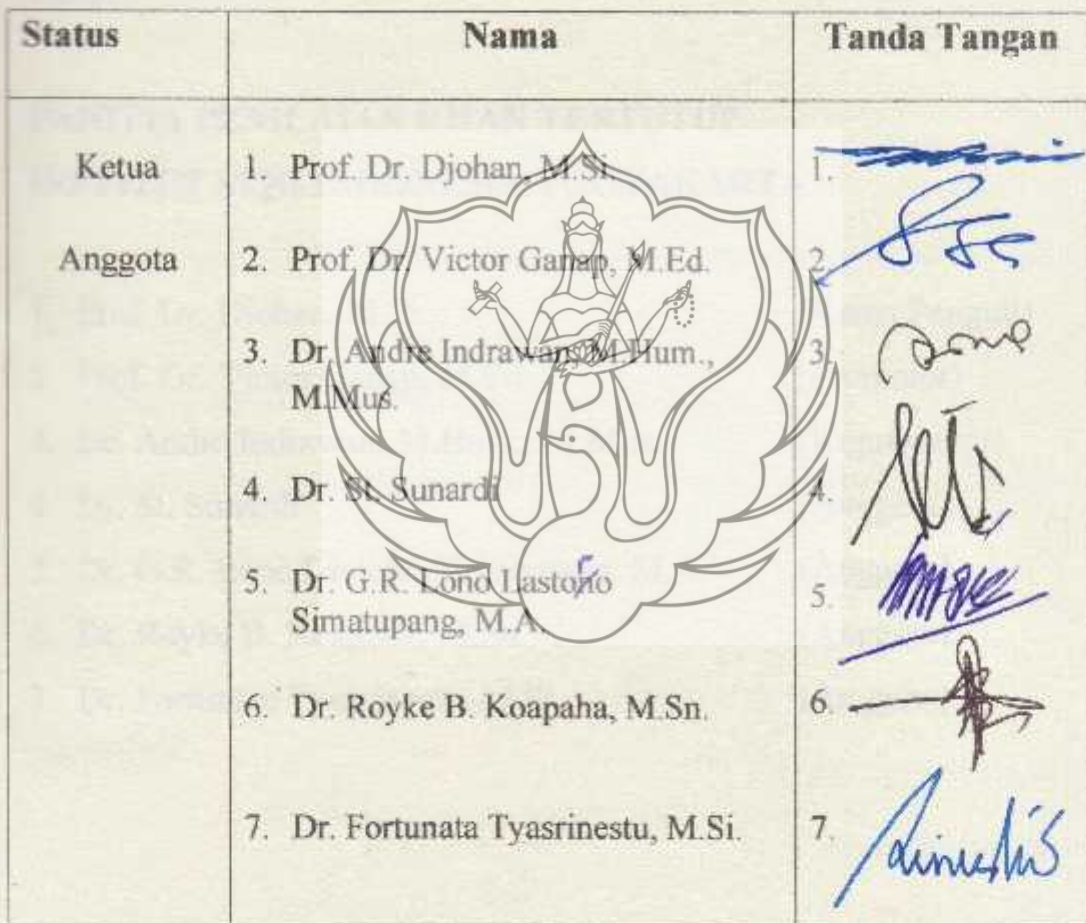 Status Nama Tanda Tangan
Ketua 1. Prof. Dr. Djohan, M.Si. 1.
Anggota 2. Prof. Dr. Victor Ganap, M.Ed. 2.
3. Dr. Andre Indrawan, M.Hum., 3.
M.Mus.
4. Dr. St. Sunardi 4.
5. Dr. G.R. Lono Lastoro 5.
Simatupang, M.A.
6. Dr. Royke B. Koapaha, M.Sn. 6.
7. Dr. Fortunata Tyasrinestu, M.Si. 7.